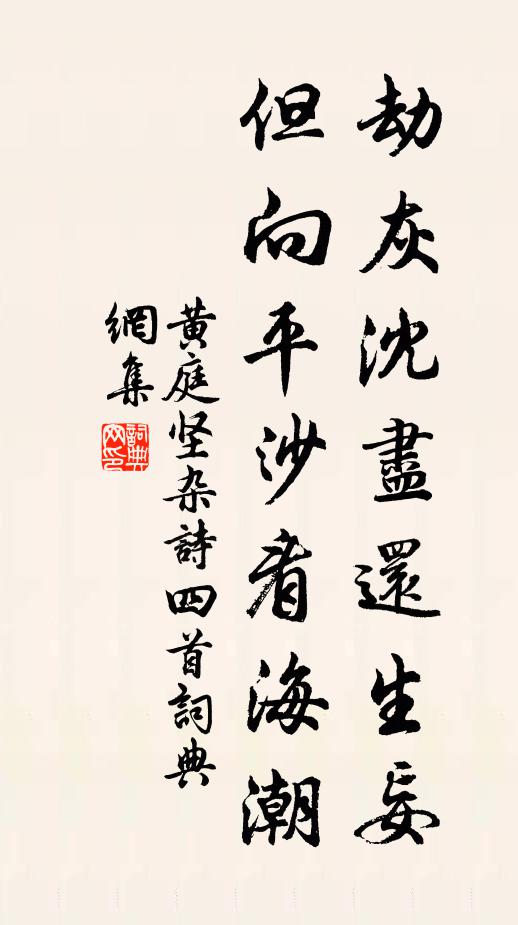 劫灰沈盡還生妄
但向平沙看海潮
黃庭坚杂詩四首詞典
網集
詞典网印